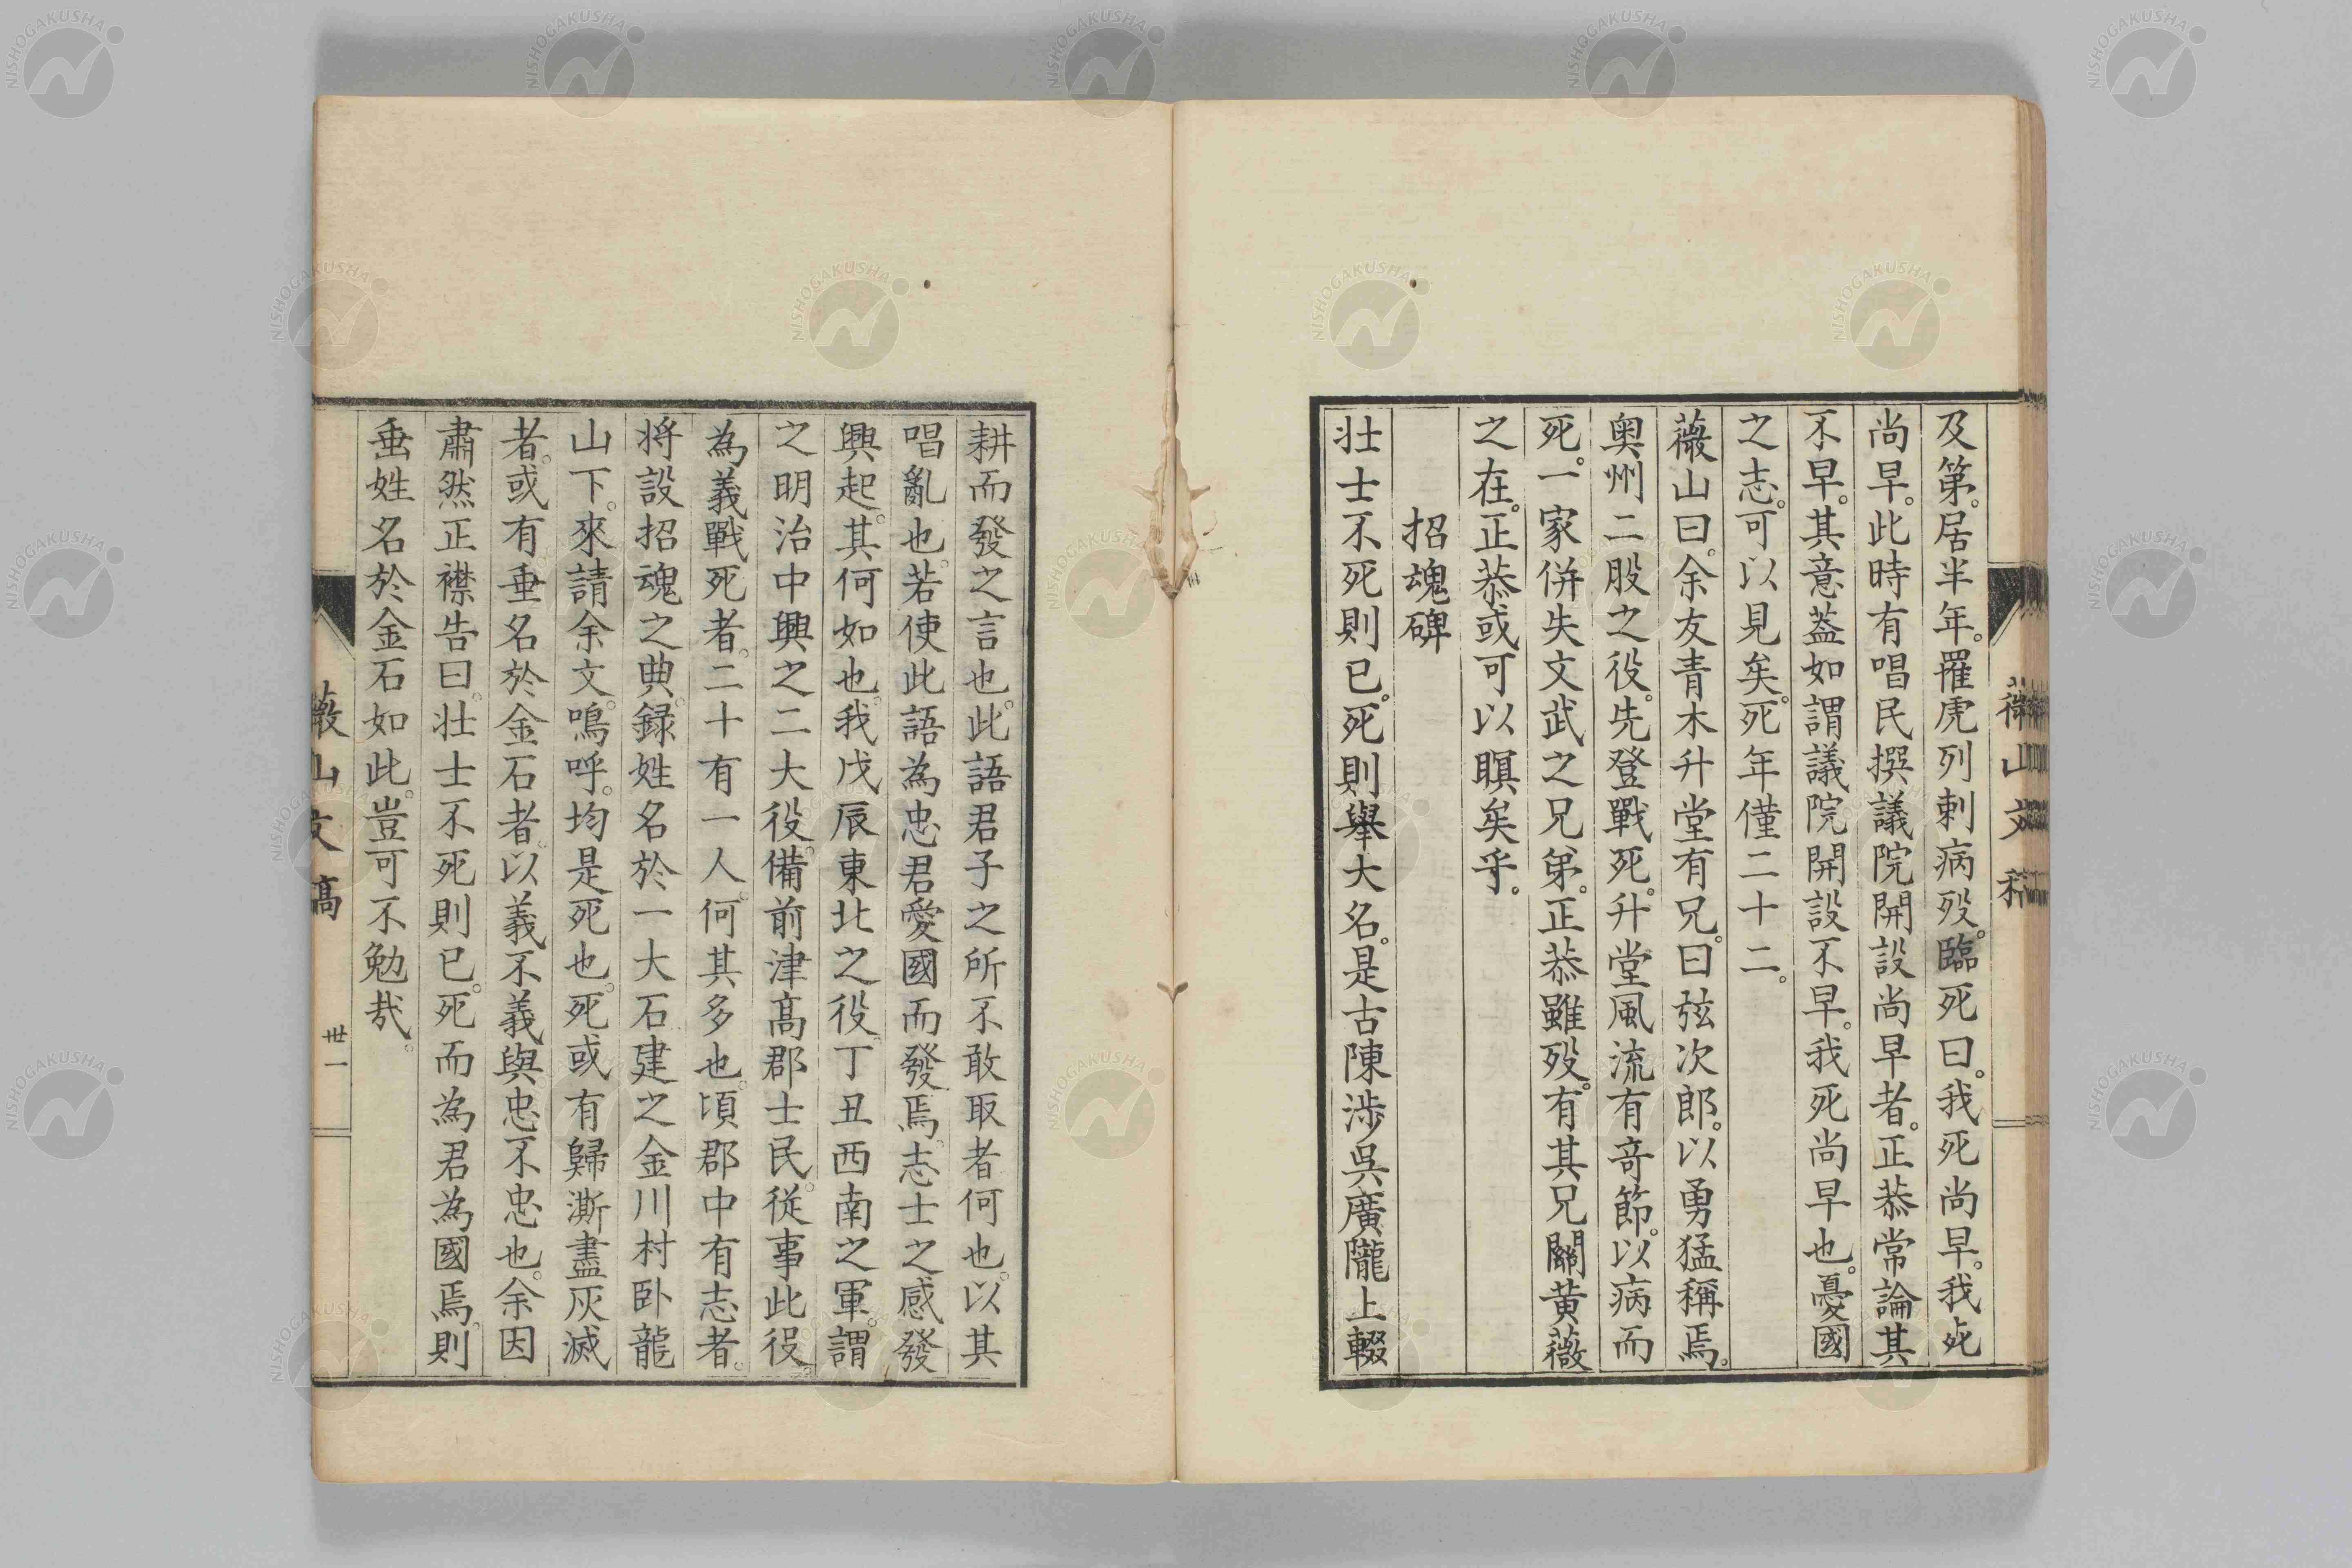 及第。居半年。羅虎列剌病歿。臨死曰。我死尚早。我死
尚早。此時有唱民撰議院開設尚早者。正恭常論其
不早。其意蓋如謂議院開設不早。我死尚早也。憂國
之志。可以見矣。死年僅二十二。
薇山曰。余友青木升堂有兄。曰弦次郎。以勇猛稱焉。
奥州二股之役。先登戰死。升堂風流有奇節。以病而
死。一家併失文武之兄弟。正恭雖歿。有其兄關黄薇
之在。正恭或可以瞑矣乎。
招魂碑
壮士不死則已。死則舉大名。是古陳渉呉廣隴上輟
耕而發之言也。此語君子之所不敢取者何也。以其
唱亂也。若使此語為忠君愛國而發焉。志士之感發
興起。其何如也。我戊辰東北之役。丁丑西南之軍。謂
之明治中興之二大役。備前津高郡士民。従事此役。
為義戰死者。二十有一人。何其多也。頃郡中有志者。
将設招魂之典。録姓名於一大石。建之金川村卧龍
山下。來請余文。嗚呼。均是死也。死或有歸澌盡灰滅
者。或有垂名於金石者。以義不義與忠不忠也。余因
肅然正襟告曰。壮士不死則已。死而為君為國焉。則
垂姓名於金石如此。豈可不勉哉。
薇山文稿
薇山文高
丗一
NISHOGAKUSHA